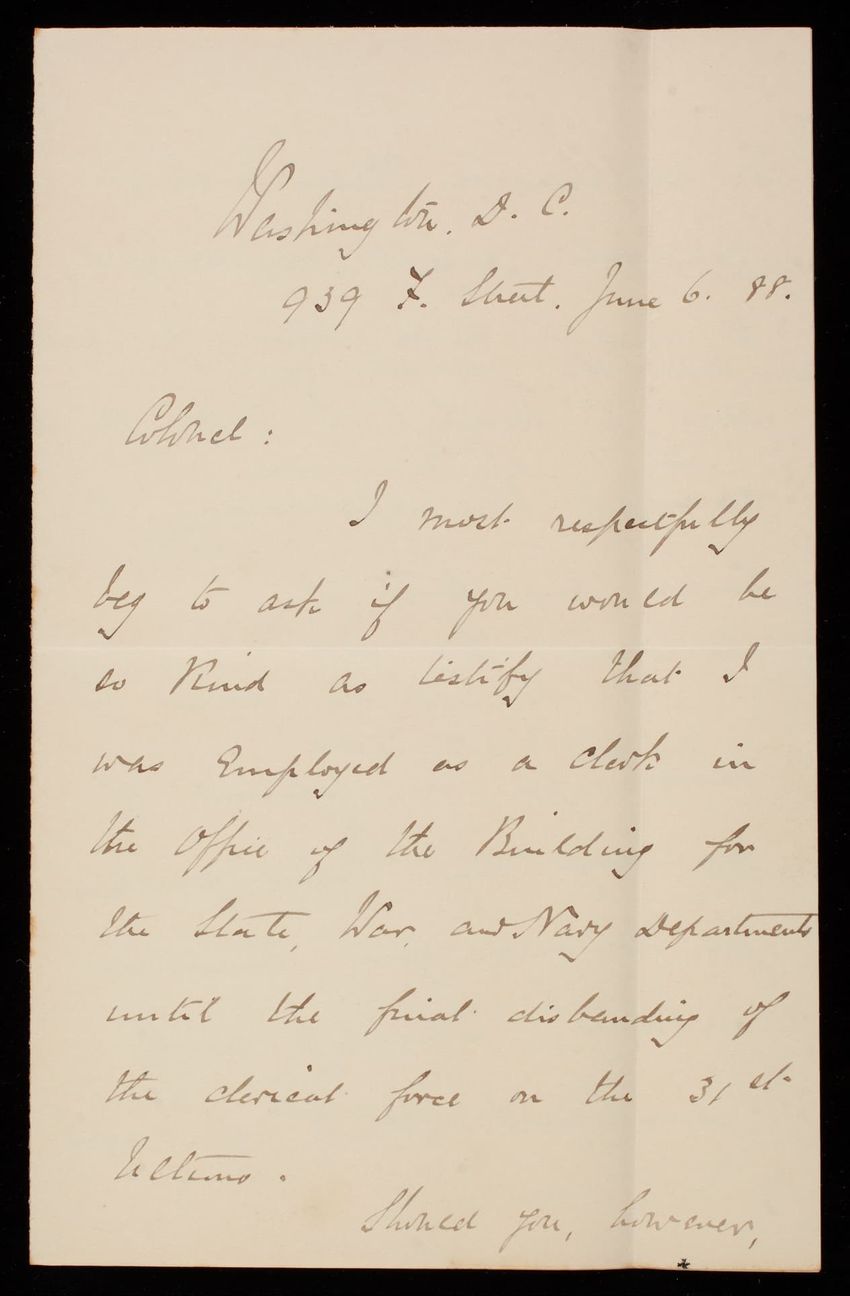 Washington. D. C.
939 F. Street. June 6. 88.
Colonel :
I most respectfully
beg to ask if you would be
so Kind as testify that I
was Employed as a clerk in
the Office of the Building for
the State, War, and Navy Departments
until the final disbanding of
the clerical force on the 31st
Ultimo.
Should you, however,